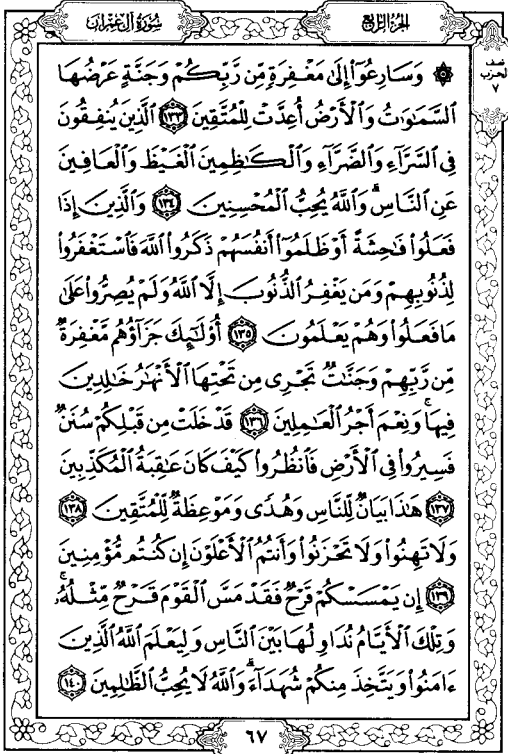 سُورَةُ آلِ عِمْرَان
الجُزْءُ الرَّابِع
نصف
الحزب
٧
۞ وَسَارِعُوٓا۟ إِلَىٰ مَغْفِرَةٍ مِّن رَّبِّكُمْ وَجَنَّةٍ عَرْضُهَا
ٱلسَّمَٰوَٰتُ وَٱلْأَرْضُ أُعِدَّتْ لِلْمُتَّقِينَ ١٣٣ ٱلَّذِينَ يُنفِقُونَ
فِى ٱلسَّرَّآءِ وَٱلضَّرَّآءِ وَٱلْكَٰظِمِينَ ٱلْغَيْظَ وَٱلْعَافِينَ
عَنِ ٱلنَّاسِ ۗ وَٱللَّهُ يُحِبُّ ٱلْمُحْسِنِينَ ١٣٤ وَٱلَّذِينَ إِذَا
فَعَلُوا۟ فَٰحِشَةً أَوْ ظَلَمُوٓا۟ أَنفُسَهُمْ ذَكَرُوا۟ ٱللَّهَ فَٱسْتَغْفَرُوا۟
لِذُنُوبِهِمْ وَمَن يَغْفِرُ ٱلذُّنُوبَ إِلَّا ٱللَّهُ وَلَمْ يُصِرُّوا۟ عَلَىٰ
مَا فَعَلُوا۟ وَهُمْ يَعْلَمُونَ ١٣٥ أُو۟لَٰٓئِكَ جَزَآؤُهُم مَّغْفِرَةٌ
مِّن رَّبِّهِمْ وَجَنَّٰتٌ تَجْرِى مِن تَحْتِهَا ٱلْأَنْهَٰرُ خَٰلِدِينَ
فِيهَا ۚ وَنِعْمَ أَجْرُ ٱلْعَٰمِلِينَ ١٣٦ قَدْ خَلَتْ مِن قَبْلِكُمْ سُنَنٌ
فَسِيرُوا۟ فِى ٱلْأَرْضِ فَٱنظُرُوا۟ كَيْفَ كَانَ عَٰقِبَةُ ٱلْمُكَذِّبِينَ
١٣٧ هَٰذَا بَيَانٌ لِّلنَّاسِ وَهُدًى وَمَوْعِظَةٌ لِّلْمُتَّقِينَ ١٣٨
وَلَا تَهِنُوا۟ وَلَا تَحْزَنُوا۟ وَأَنتُمُ ٱلْأَعْلَوْنَ إِن كُنتُم مُّؤْمِنِينَ
١٣٩ إِن يَمْسَسْكُمْ قَرْحٌ فَقَدْ مَسَّ ٱلْقَوْمَ قَرْحٌ مِّثْلُهُۥ ۚ
وَتِلْكَ ٱلْأَيَّامُ نُدَاوِلُهَا بَيْنَ ٱلنَّاسِ وَلِيَعْلَمَ ٱللَّهُ ٱلَّذِينَ
ءَامَنُوا۟ وَيَتَّخِذَ مِنكُمْ شُهَدَآءَ ۗ وَٱللَّهُ لَا يُحِبُّ ٱلظَّٰلِمِينَ ١٤٠
٦٧